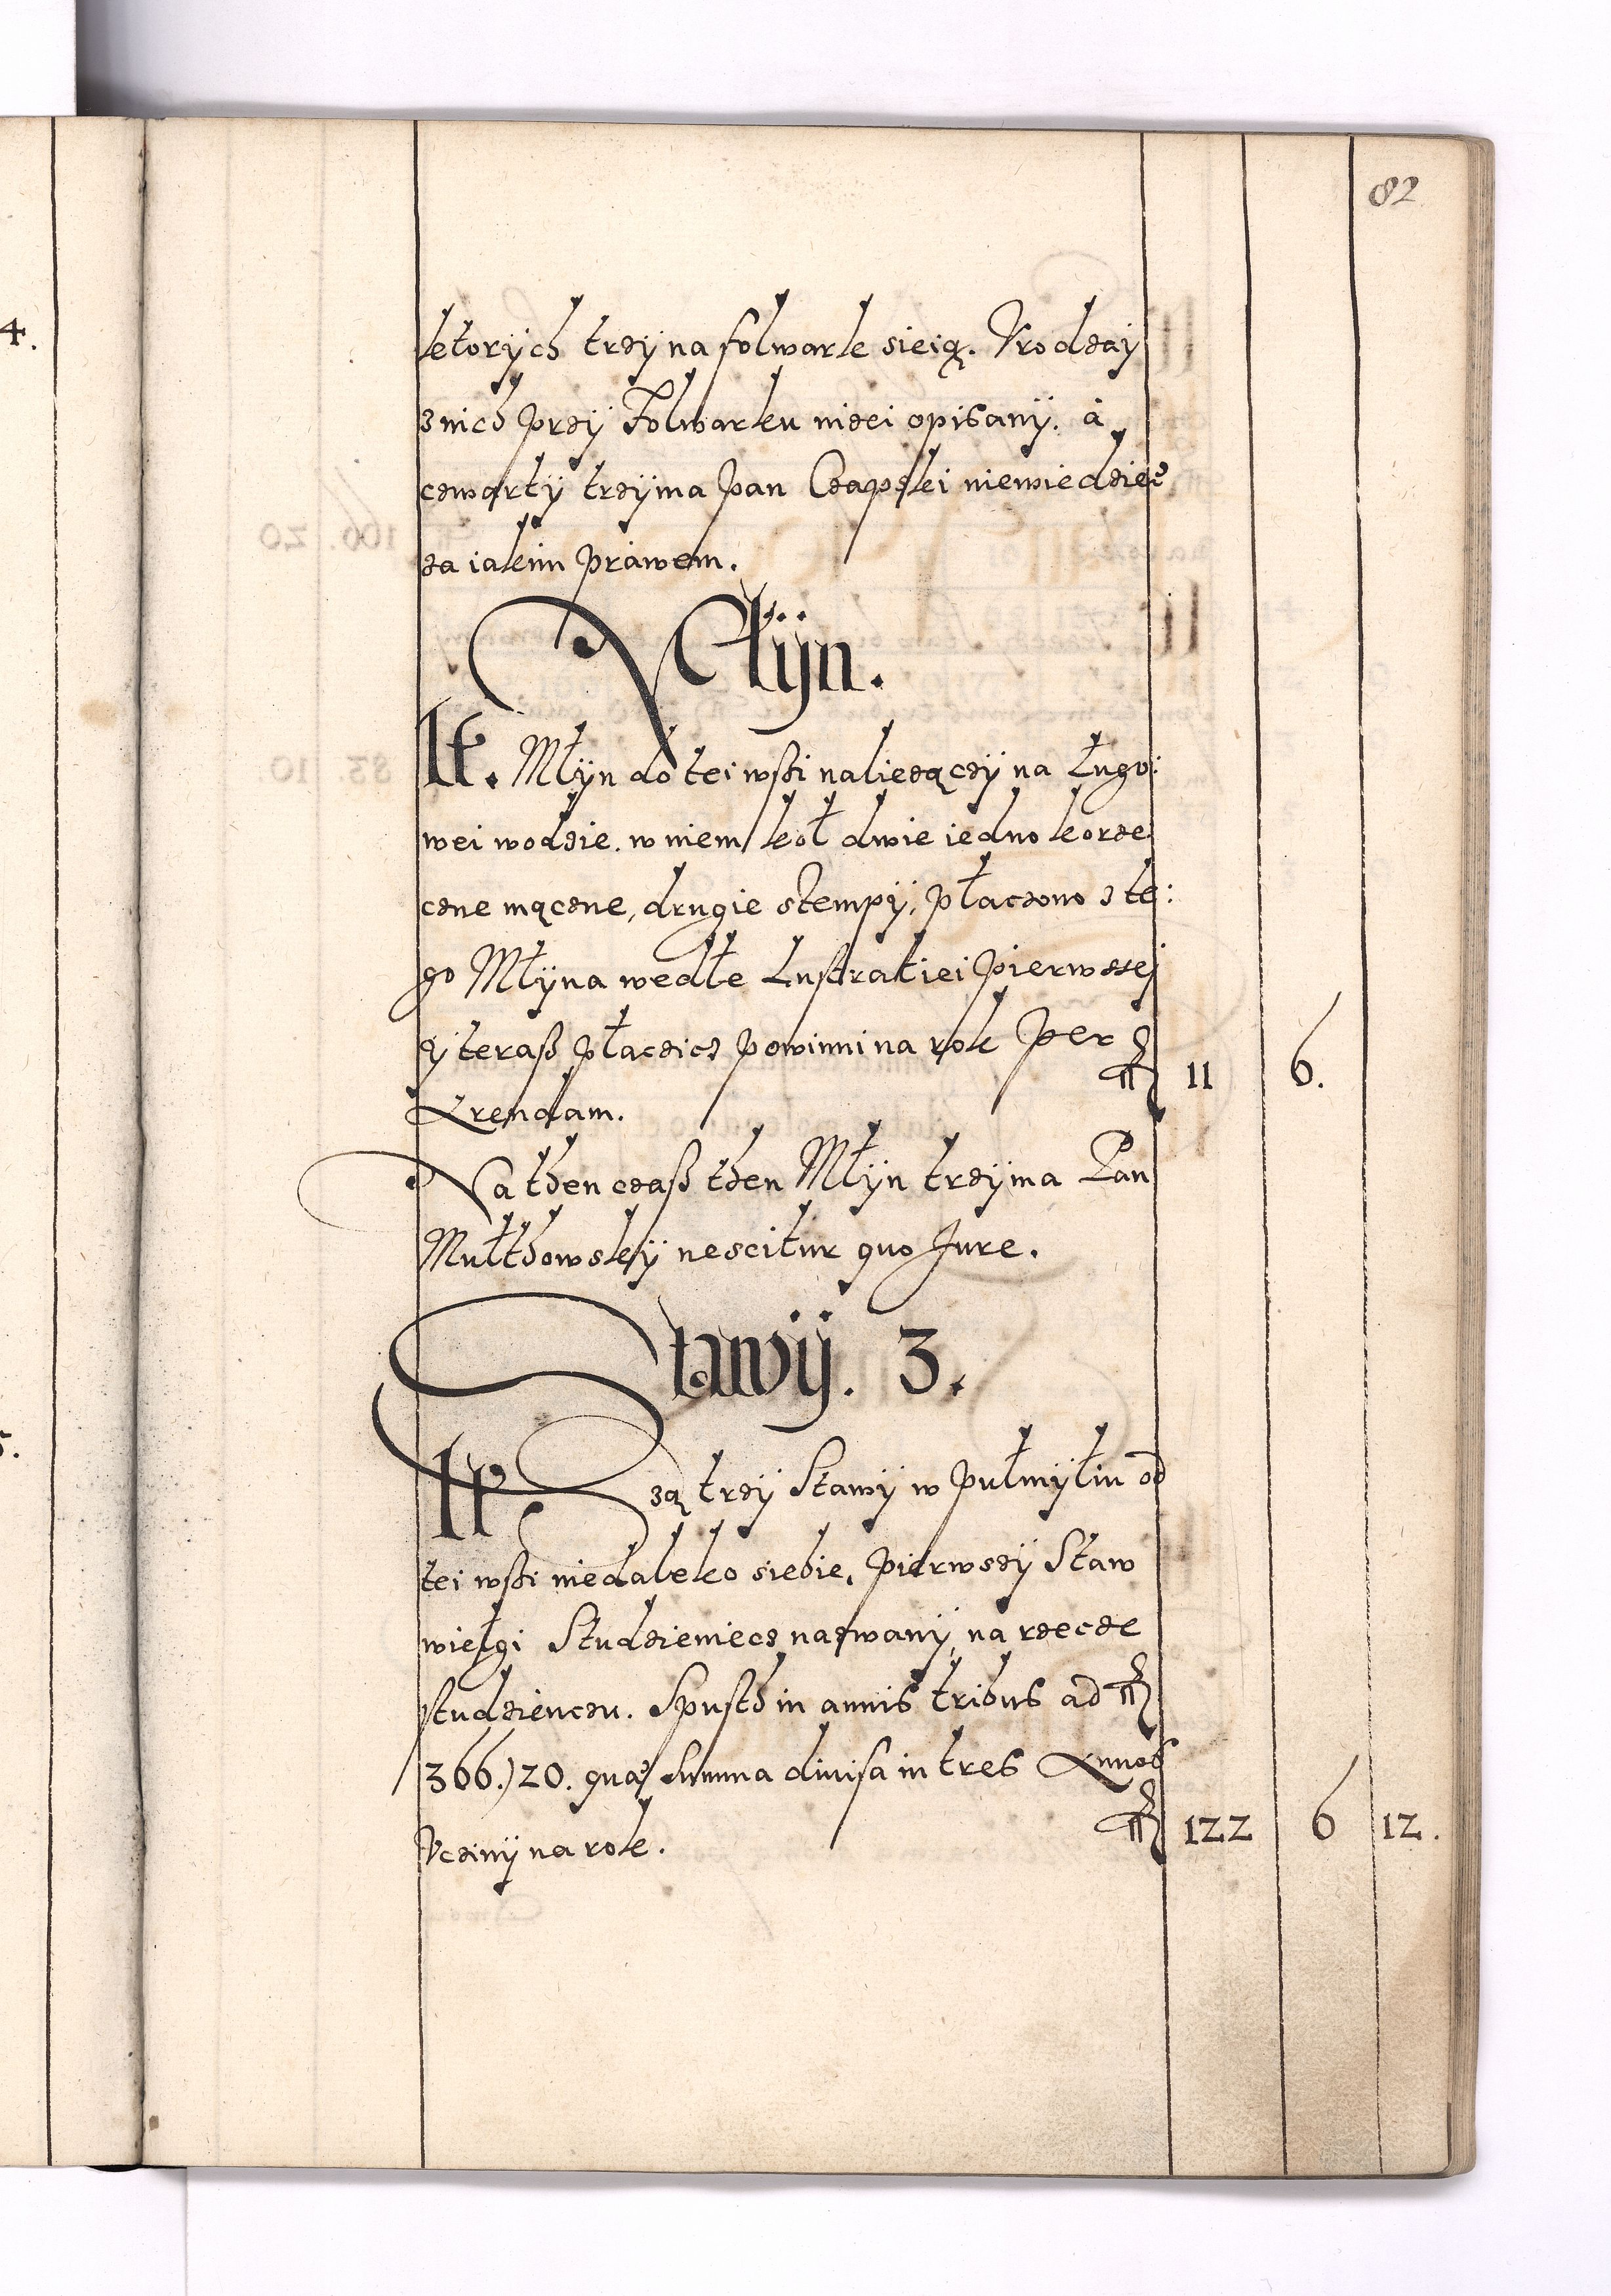 82
4.
ktorych trzy na folwark sieią. Vrodzaÿ
z nich przÿ Folwarku nizei opisanÿ. à
czwartÿ trzÿma pan Czapski niewiedziec
za iakim práwem.
Młÿn.
It. Młÿn do tei wsti naliezączÿ na Ługo:
wei wodzie. w niem koł dwie iedno korze
czne mączne, drugie stempÿ, płaczono z te:
go Młÿna wedłe Lustratiei pierwssej
ÿ teraß płaczicz powinni na rok per
Arendam. 11 6.
Na then czaß then Młÿn trzÿma Pan
Mułthowskÿ nescitur quo Jure.
Stawÿ. 3.
It. są trzÿ Stawÿ w pułmÿłiu od
tei wsti niedaleko siebie, pierwszÿ Staw
wielgi Studzieniecz nazwanÿ, na rzecze
studzienczu. Spusth in annis tribus ad f
366.) 20. quae summa diuisa in tres Annos
Vczinÿ na rok. f 122 6 12.